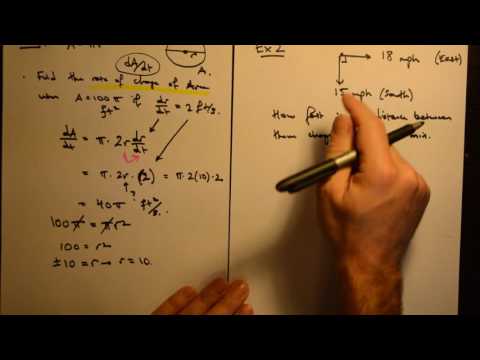 dA/dt
A.
. Find the rate of change of Area
when A = 100π if dr/dt = 2 ft/s.
ft²
dA/dt = π · 2r dr/dt
= π · 2r · (2) = π · 2(10) · 2
?
= 40π ft²/s.
100π = πr²
100 = r²
±10 = r → r = 10.
Ex 2
18 mph (East)
15 mph (South)
How fast is distance between
them min.